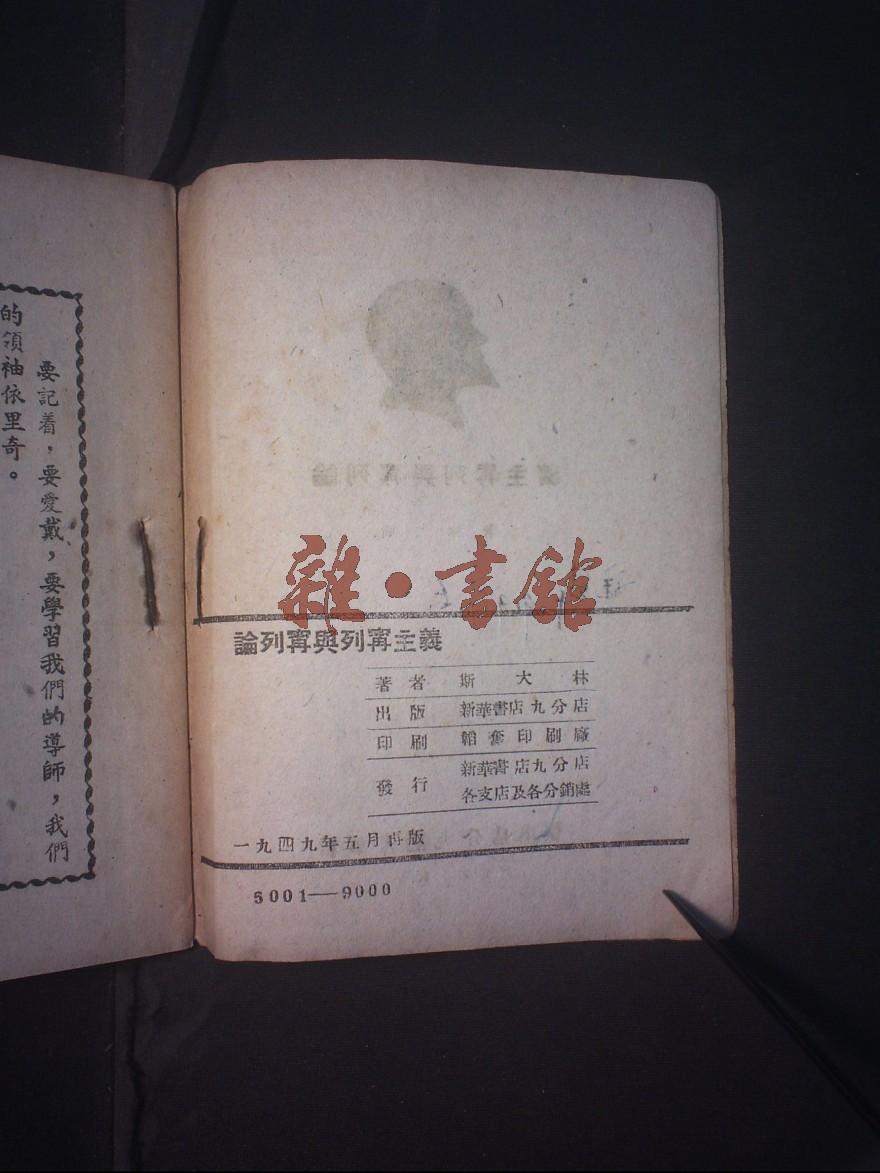 要記着，要愛戴，要學習我們的導師，我們
的領袖依里奇。
雜·書館
論列寗與列寗主義
著者 斯大林
出版 新華書店九分店
印刷 韜奮印刷廠
發行 新華書店九分店
各支店及各分銷處
一九四九年五月再版
5001—9000